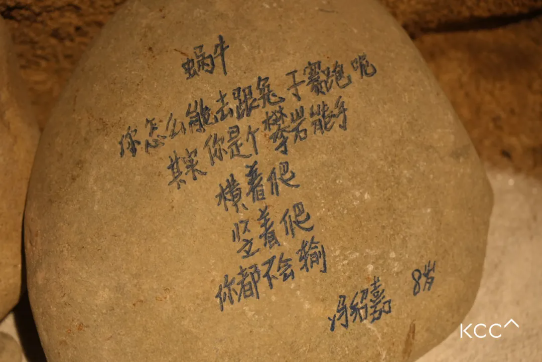 蜗牛
你怎么敢去跟兔子赛跑呢
其实你是个攀岩能手
横着爬
竖着爬
你都不会输
冯绍嘉 8岁
KCC^